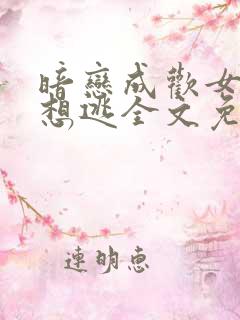 暗戀成歡女
想逃全文免
連明惠